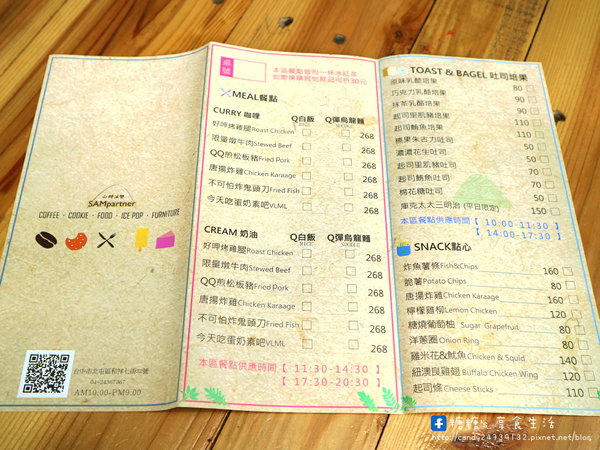 山姆沐樂
SAMpartner
COFFEE · COOKIE · FOOD · ICE POP · FURNITURE
台中市北屯區和祥七街32號
04-24367367
AM10:00-PM9:00
桌號
本區餐點皆附一杯冰紅茶
如需換購其他飲品可折30元
MEAL餐點
CURRY 咖哩 Q白飯 RICE Q彈烏龍麵 NOODLE
好呷烤雞腿Roast Chicken 268
限量燉牛肉Stewed Beef 268
QQ煎松板豬Fried Pork 268
唐揚炸雞Chicken Karaage 268
不可怕炸鬼頭刀Fried Fish 268
今天吃蛋奶素吧VLML 268
CREAM 奶油 Q白飯 RICE Q彈烏龍麵 NOODLE
好呷烤雞腿Roast Chicken 268
限量燉牛肉Stewed Beef 268
QQ煎松板豬Fried Pork 268
唐揚炸雞Chicken Karaage 268
不可怕炸鬼頭刀Fried Fish 268
今天吃蛋奶素吧VLML 268
本區餐點供應時間【 11:30-14:30 】
【 17:30-20:30 】
TOAST & BAGEL 吐司焙果
原味乳酪焙果 80
巧克力乳酪焙果 90
抹茶乳酪焙果 90
起司里肌豬焙果 110
起司鮪魚焙果 110
榛果朱古力吐司 50
濃濃花生吐司 50
起司里肌豬吐司 70
起司鮪魚吐司 70
棉花糖吐司 50
庫克太太三明治 (平日限定) 150
本區餐點供應時間【 10:00-11:30 】
【 14:00-17:30 】
SNACK點心
炸魚薯條Fish&Chips 160
脆薯Potato Chips 80
唐揚炸雞Chicken Karaage 160
檸檬雞柳Lemon Chicken 120
糖燒葡萄柚 Sugar Grapefruit 80
洋蔥圈Onion Ring 80
雞米花&魷魚Chicken & Squid 140
紐澳良雞翅Buffalo Chicken Wing 120
起司條Cheese Sticks 110
糖糖's 享食生活
http://candy24339132.pixnet.net/blog